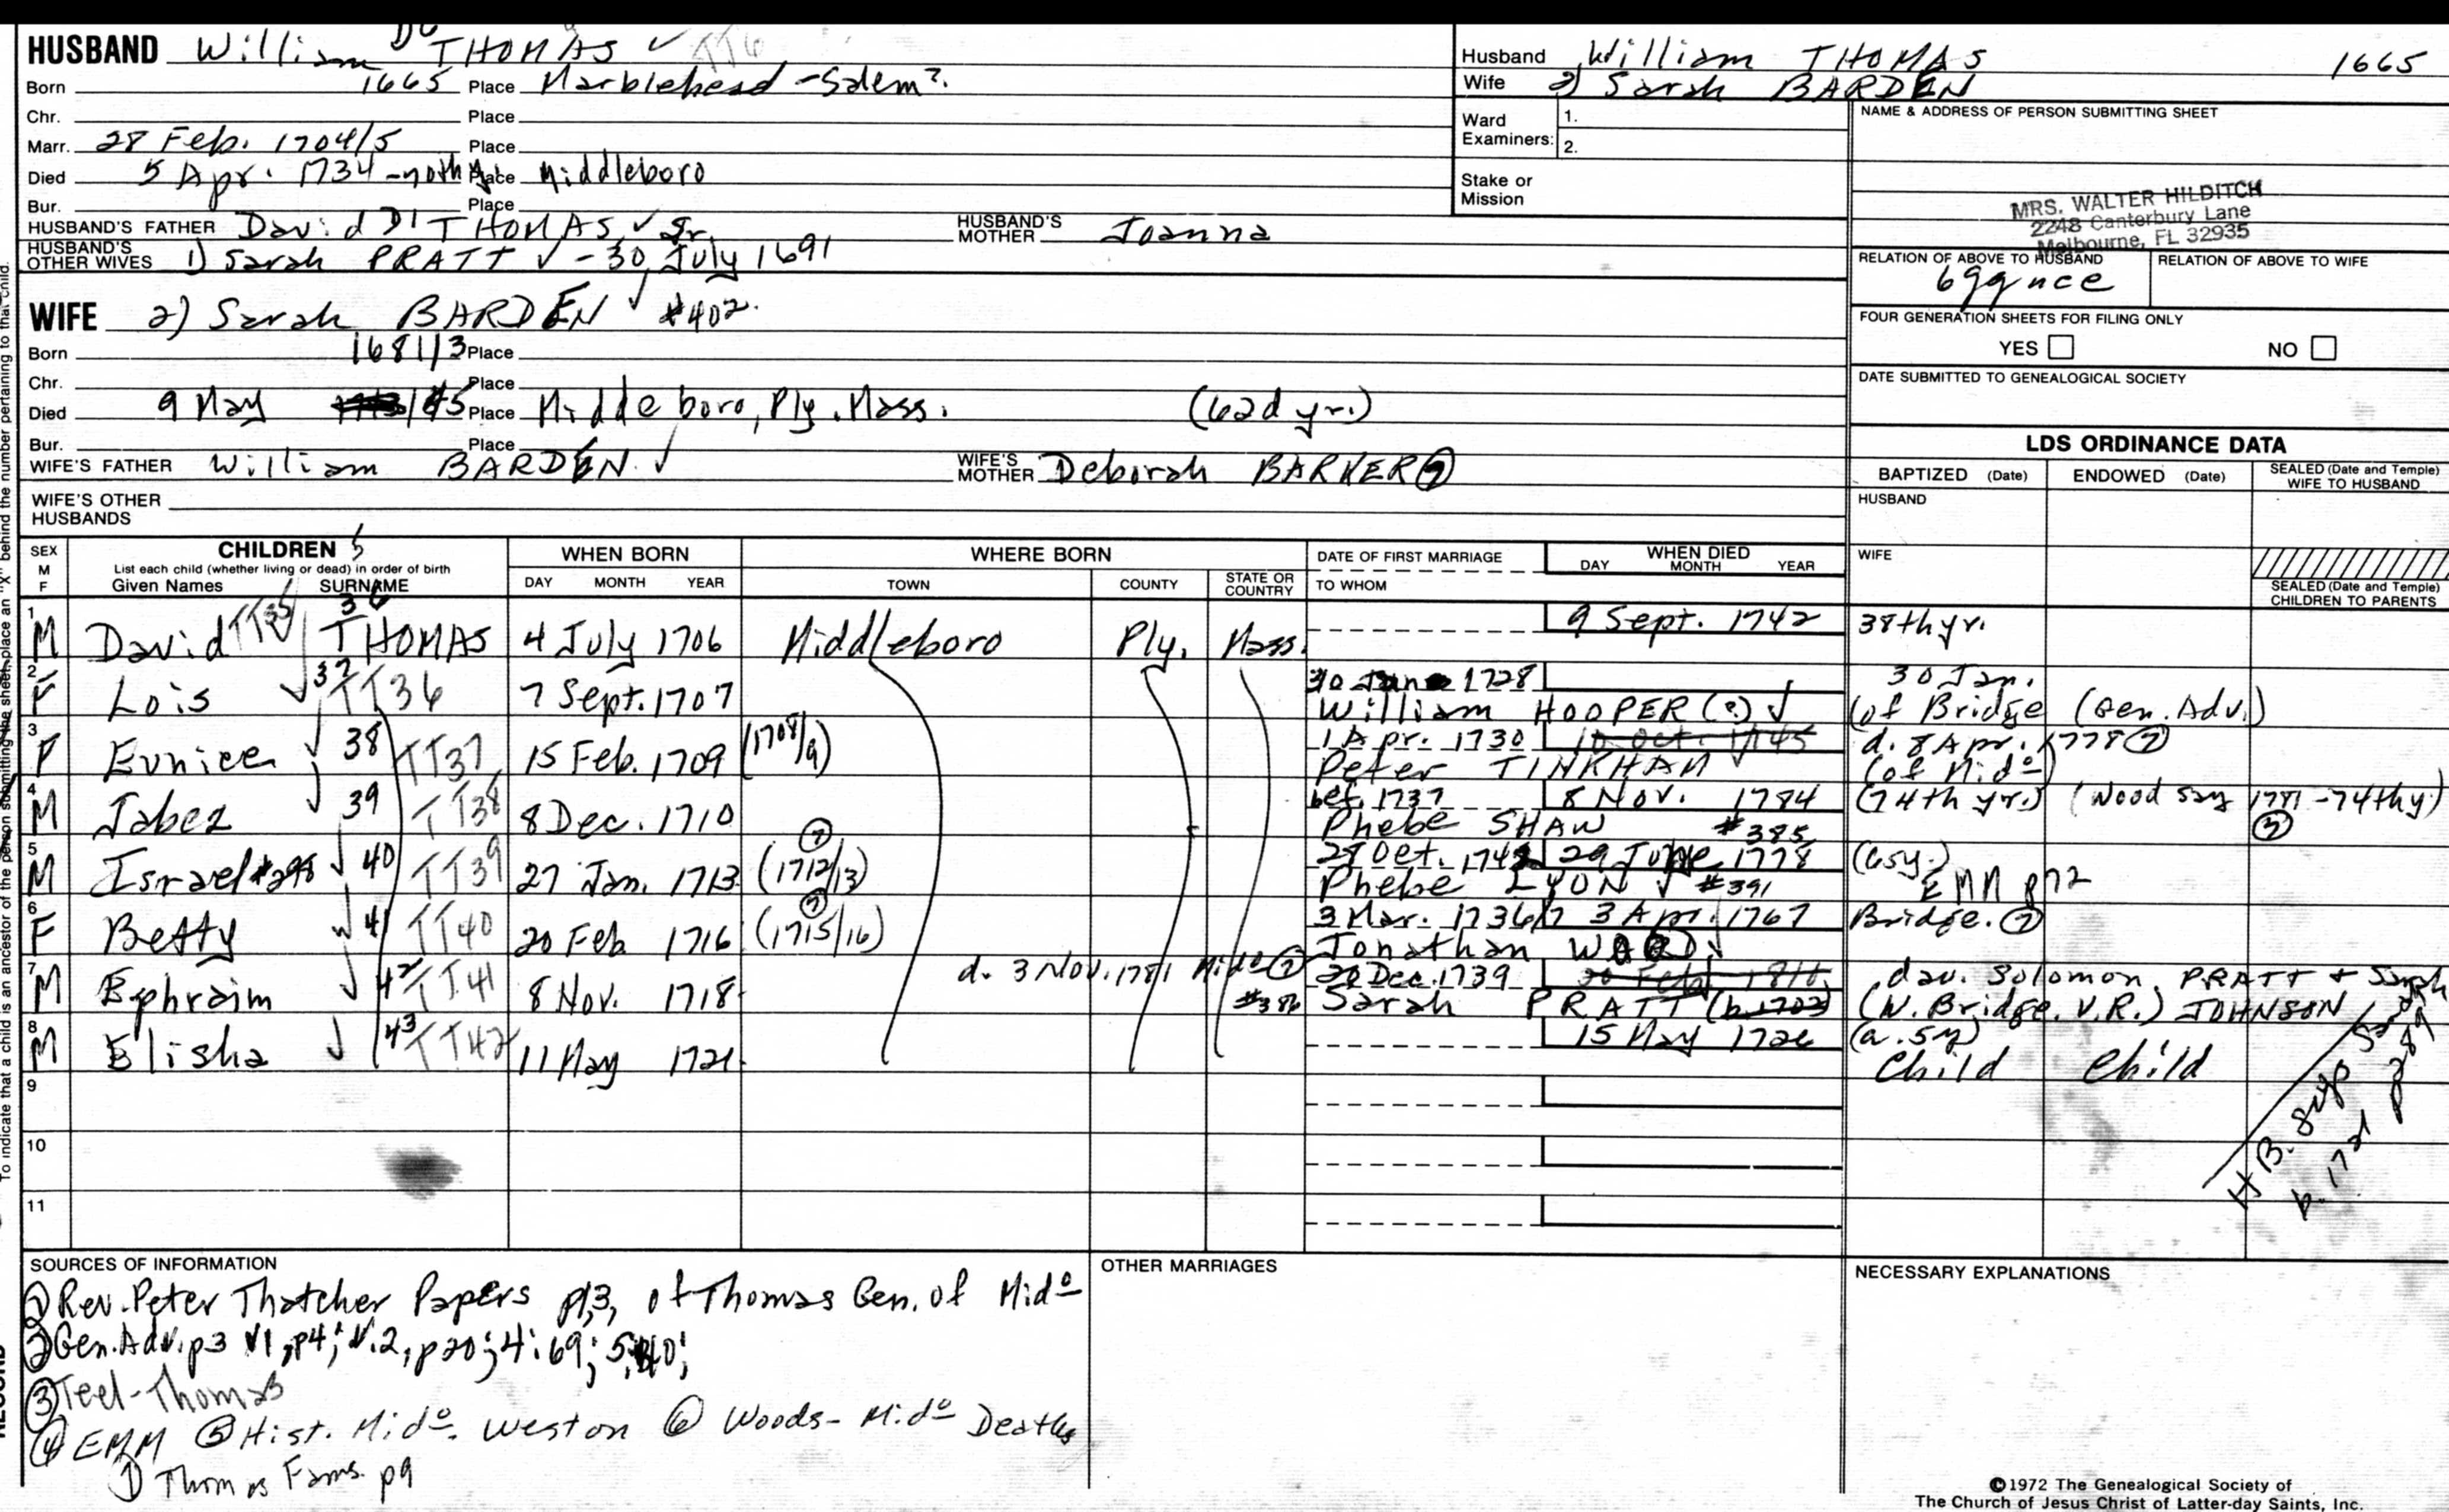 HUSBAND William D6 THOMAS ✓ TT6
Born 1665 Place Marblehead - Salem?
Chr. Place
Marr. 28 Feb. 1704/5 Place
Died 5 Apr. 1734 Place Middleboro
Bur. Place
HUSBAND'S FATHER David D1 THOMAS ✓ Sr. HUSBAND'S MOTHER Joanna
HUSBAND'S OTHER WIVES 1) Sarah PRATT ✓ - 30 July 1691
WIFE 2) Sarah BARDEN ✓ #402.
Born 1681/3 Place
Chr. Place
Died 9 May 45 Place Middleboro, Ply. Mass. (62d yr.)
Bur. Place
WIFE'S FATHER William BARDEN ✓ WIFE'S MOTHER Deborah BARKER
WIFE'S OTHER HUSBANDS
Husband William THOMAS 1665
Wife 2) Sarah BARDEN
Ward Examiners: 1.
2.
Stake or Mission
NAME & ADDRESS OF PERSON SUBMITTING SHEET
MRS. WALTER HILDITCH
2248 Canterbury Lane
Melbourne, FL 32935
RELATION OF ABOVE TO HUSBAND RELATION OF ABOVE TO WIFE
6ggnce
FOUR GENERATION SHEETS FOR FILING ONLY
YES NO
DATE SUBMITTED TO GENEALOGICAL SOCIETY
LDS ORDINANCE DATA
BAPTIZED (Date) ENDOWED (Date) SEALED (Date and Temple) WIFE TO HUSBAND
HUSBAND
WIFE
SEALED (Date and Temple) CHILDREN TO PARENTS
SEX M F
CHILDREN
List each child (whether living or dead) in order of birth
Given Names SURNAME
WHEN BORN
DAY MONTH YEAR
WHERE BORN
TOWN COUNTY STATE OR COUNTRY
DATE OF FIRST MARRIAGE
TO WHOM
WHEN DIED
DAY MONTH YEAR
1 M David TT35 36 THOMAS 4 July 1706 Middleboro Ply. Mass. 9 Sept. 1742 38th yr.
2 F Lois ✓ 37 TT36 7 Sept. 1707 30 1728 30 Jan.
William HOOPER (?) ✓ (of Bridge (Gen. Adv.)
3 F Eunice ✓ 38 TT37 15 Feb. 1709 (1708/9) 1 Apr. 1730 10 Oct. 1745 d. 8 Apr. 1778
Peter TINKHAM ✓ (of Mido)
4 M Jabez ✓ 39 TT38 8 Dec. 1710 bef. 1737 8 Nov. 1784 (74th yr.) (Wood say 1781 - 74thy)
Phebe SHAW #385
5 M Israel #298 ✓ 40 TT39 27 Jan. 1713 (1712/13) 28 Oct. 29 June 1778 (65y.)
Phebe LYON ✓ #391 EMM p72
6 F Betty ✓ 41 TT40 20 Feb 1716 (1715/16) 3 Mar. 1736/7 3 Apr. 1767 Bridge.
Jonathan
7 M Ephraim ✓ 42 TT41 8 Nov. 1718 d. 3 Nov. 1781 Mido 20 Dec. 1739 dau. Solomon PRATT + Sarah
#386 Sarah PRATT (b. 1702) (W. Bridge. V.R.) JOHNSON
8 M Elisha ✓ 43 TT42 11 May 1721 15 May 1726 (a. 5y)
Child Child
H B. says
b. 1721 p289
9
10
11
To indicate that a child is an ancestor of the person submitting the sheet, place an "X" behind the number pertaining to that child.
SOURCES OF INFORMATION
① Rev. Peter Thatcher Papers p13, of Thomas Gen. of Mido
② Gen. Adv. p3 V1, p4; V.2, p20; 4:69;
③ Teel-Thomas
④ EMM ⑤ Hist. Mido. Weston ⑥ Woods - Mido Deaths
Thomas Fams. p9
OTHER MARRIAGES
NECESSARY EXPLANATIONS
©1972 The Genealogical Society of
The Church of Jesus Christ of Latter-day Saints, Inc.